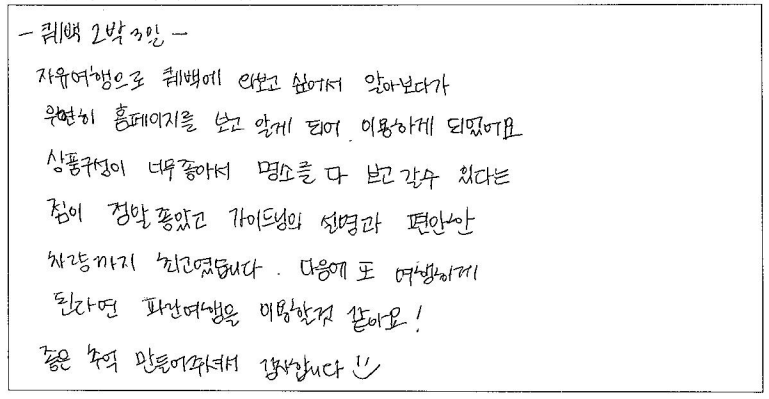 - 퀘백 2박 3일 -
자유여행으로 퀘백에 와보고 싶어서 알아보다가
우연히 홈페이지를 보고 알게 되어 이용하게 되었어요
상품구성이 너무좋아서 명소를 다 보고 갈수 있다는
점이 정말 좋았고 가이드님의 설명과 편안한
차량까지 최고였습니다. 다음에 또 여행하게
된다면 파란여행을 이용할것 같아요!
좋은 추억 만들어주셔서 감사합니다